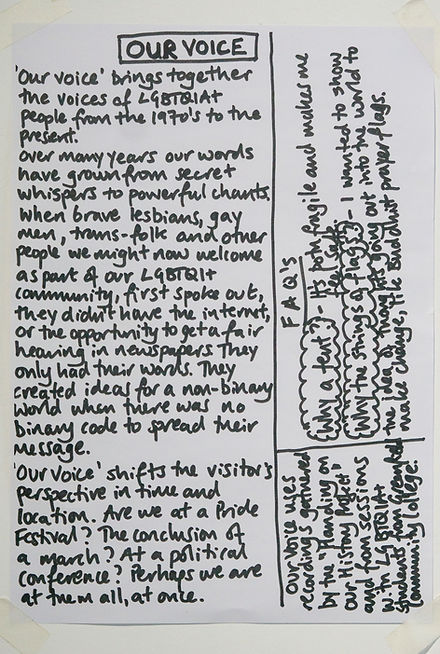 OUR VOICE
'Our Voice' brings together
the voices of LGBTQIA+
people from the 1970's to the
present.
Over many years our words
have grown from secret
whispers to powerful chants.
When brave lesbians, gay
men, trans-folk and other
people we might now welcome
as part of our LGBTQI+
community, first spoke out,
they didn't have the internet,
or the opportunity to get a fair
hearing in newspapers. They
only had their words. They
created ideas for a non-binary
world when there was no
binary code to spread their
message.
'Our Voice' shifts the visitor's
perspective in time and
location. Are we at a Pride
Festival? The conclusion of
a march? At a political
conference? Perhaps we are
at them all, at once.
FAQ's
Why a tent? - It's both fragile and makes me
feel safe.
Why the strings of flags? - I wanted to show
the idea of thoughts going out into the world to
make change, like Buddhist prayer flags.
Our Voice uses
recordings gathered
by the 'Handing on
Our History Project'
and from sessions
with LGBTQIA+
students from
Community College.